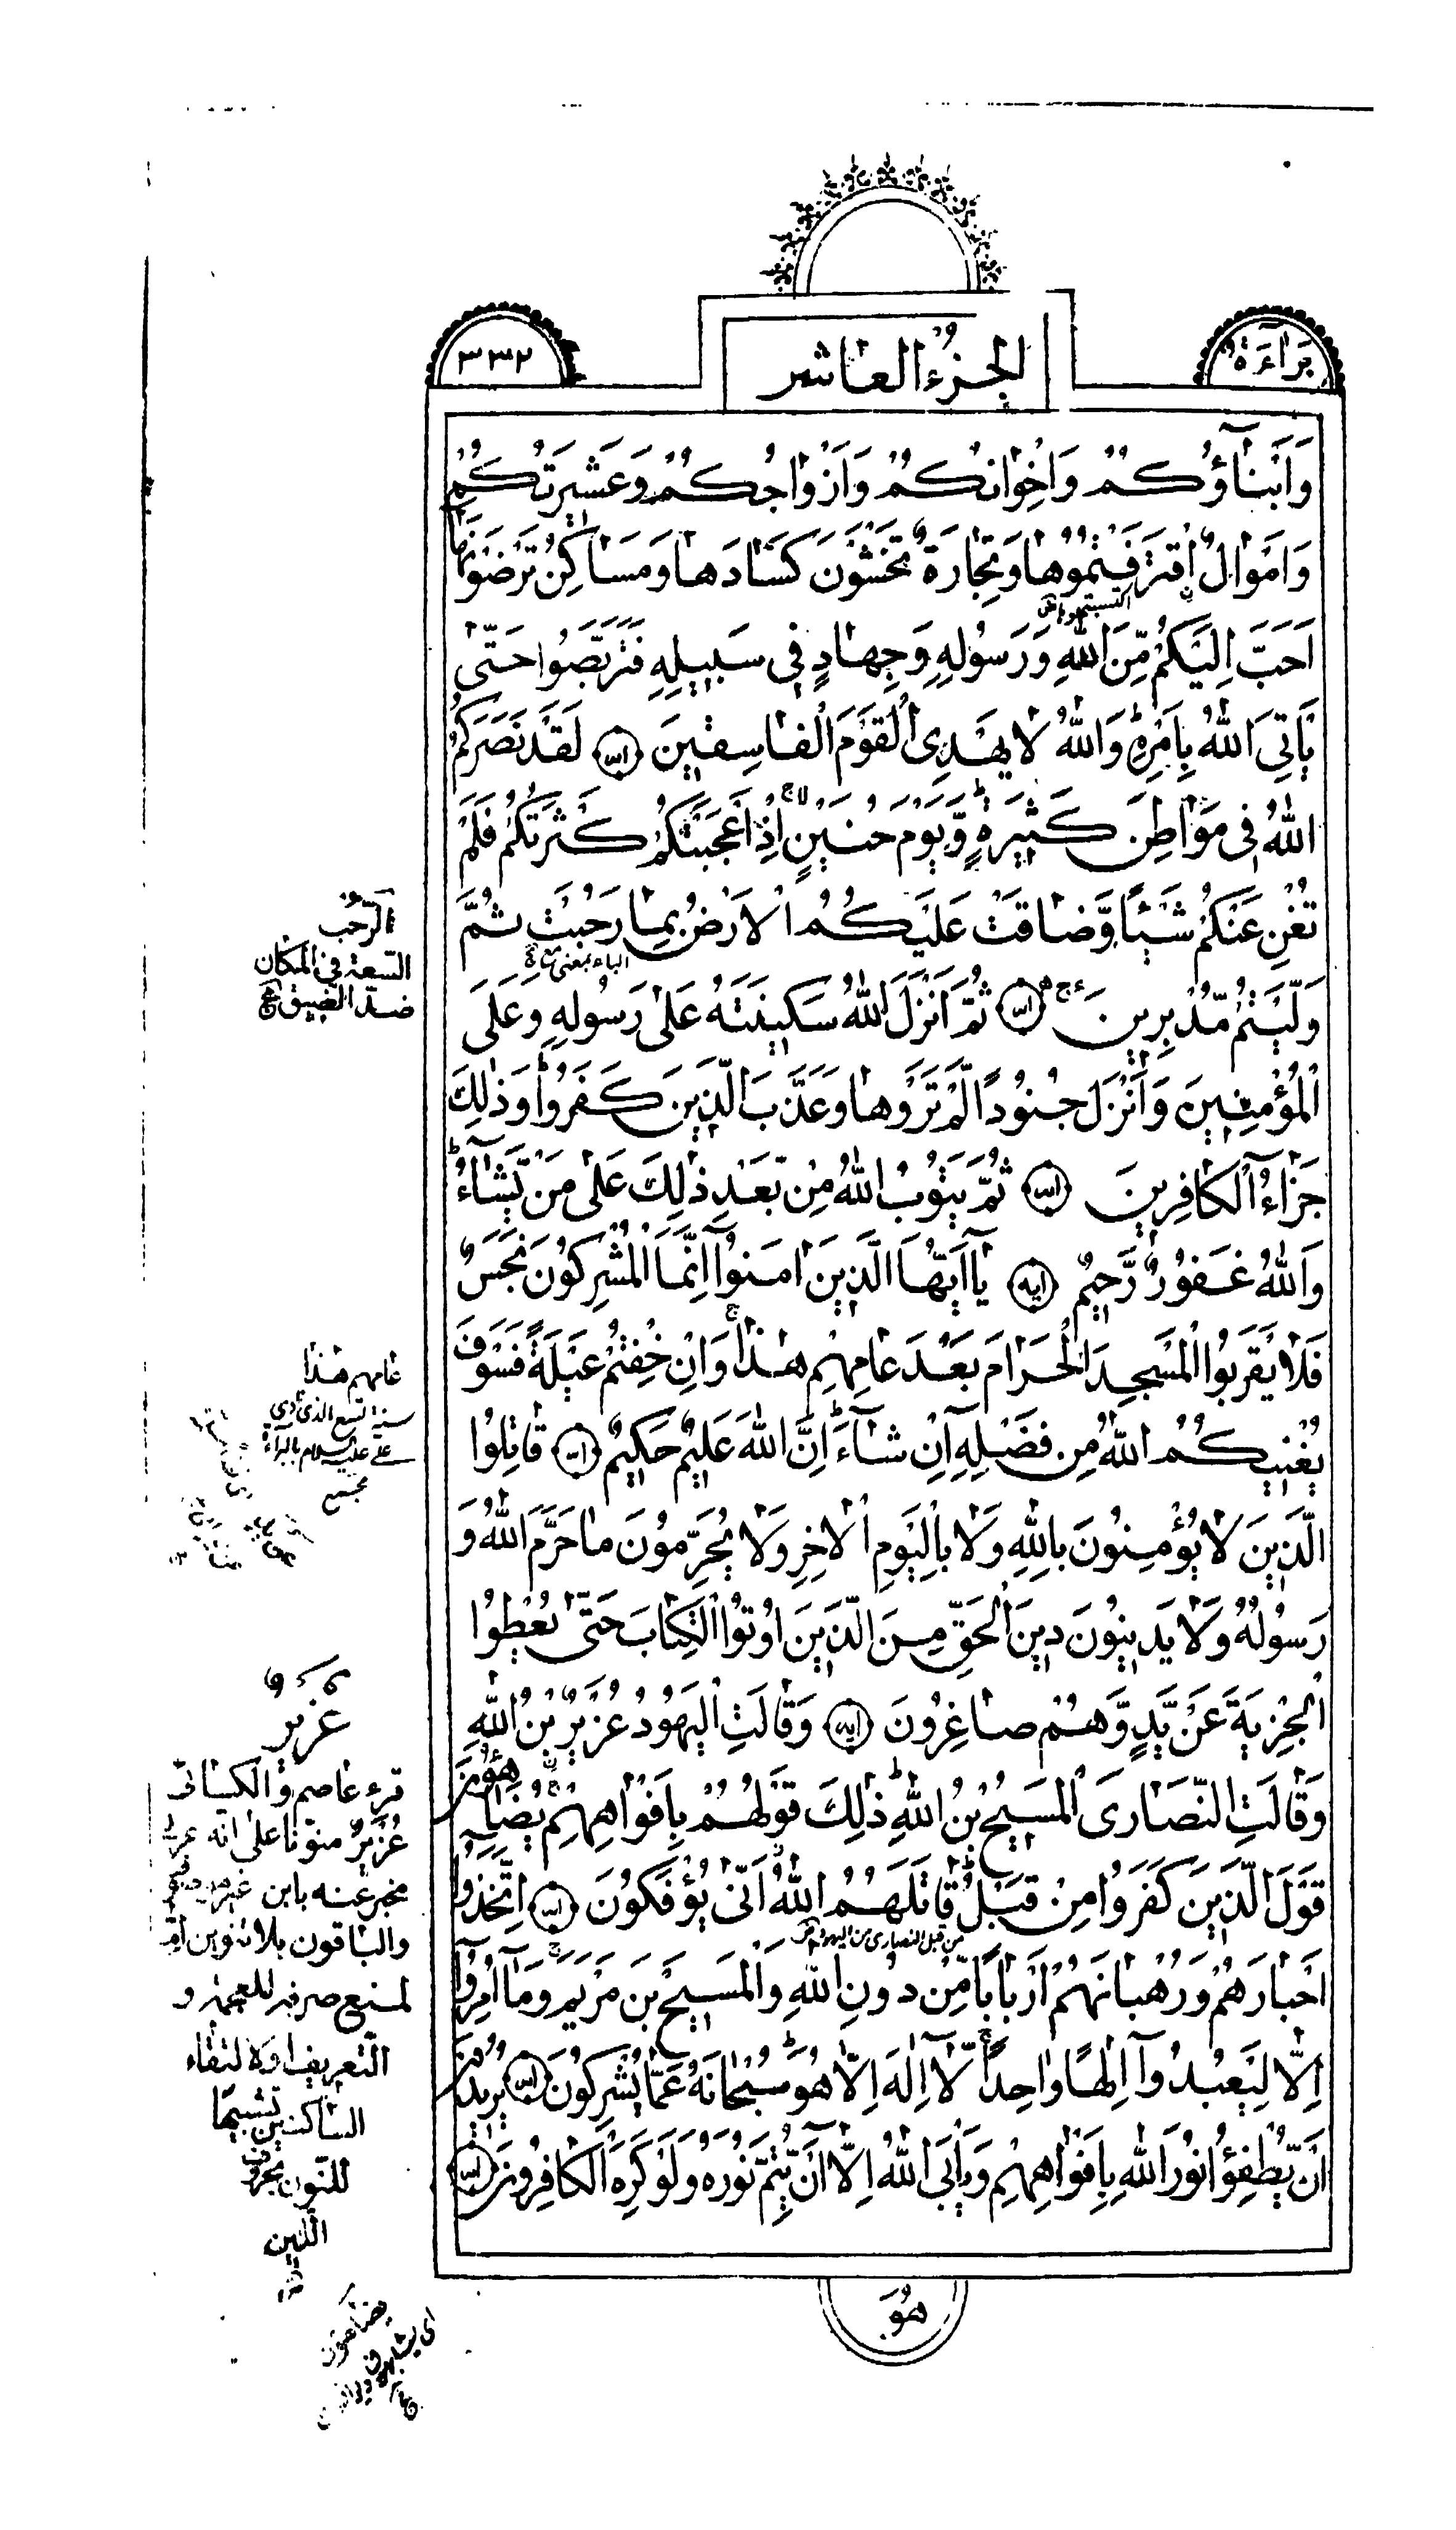 بَرَاءَة
الجُزءُ العاشر
٣٣٢
وَاَبْنَآؤُكُمْ وَاِخْوَانُكُمْ وَاَزْوَاجُكُمْ وَعَشِيرَتُكُمْ
وَاَمْوَالٌ اقْتَرَفْتُمُوهَا وَتِجَارَةٌ تَخْشَوْنَ كَسَادَهَا وَمَسَاكِنُ تَرْضَوْنَهَا
اَحَبَّ اِلَيْكُمْ مِّنَ اللّٰهِ وَرَسُولِهِ وَجِهَادٍ فِي سَبِيلِهِ فَتَرَبَّصُوا حَتّٰى
يَأْتِيَ اللّٰهُ بِاَمْرِهِ وَاللّٰهُ لَا يَهْدِي الْقَوْمَ الْفَاسِقِينَ ۝ لَقَدْ نَصَرَكُمُ
اللّٰهُ فِي مَوَاطِنَ كَثِيرَةٍ وَّيَوْمَ حُنَيْنٍ اِذْ اَعْجَبَتْكُمْ كَثْرَتُكُمْ فَلَمْ
تُغْنِ عَنْكُمْ شَيْئًا وَّضَاقَتْ عَلَيْكُمُ الْاَرْضُ بِمَا رَحُبَتْ ثُمَّ
الباء بمعنى مع
وَلَّيْتُمْ مُّدْبِرِينَ ۝ ثُمَّ اَنْزَلَ اللّٰهُ سَكِينَتَهُ عَلٰى رَسُولِهِ وَعَلَى
الْمُؤْمِنِينَ وَاَنْزَلَ جُنُودًا لَّمْ تَرَوْهَا وَعَذَّبَ الَّذِينَ كَفَرُوا وَذٰلِكَ
جَزَاءُ الْكَافِرِينَ ۝ ثُمَّ يَتُوبُ اللّٰهُ مِنْ بَعْدِ ذٰلِكَ عَلٰى مَنْ يَّشَاءُ
وَاللّٰهُ غَفُورٌ رَّحِيمٌ ۝ يَآ اَيُّهَا الَّذِينَ اٰمَنُوآ اِنَّمَا الْمُشْرِكُونَ نَجَسٌ
فَلَا يَقْرَبُوا الْمَسْجِدَ الْحَرَامَ بَعْدَ عَامِهِمْ هٰذَا وَاِنْ خِفْتُمْ عَيْلَةً فَسَوْفَ
يُغْنِيكُمُ اللّٰهُ مِنْ فَضْلِهِ اِنْ شَآءَ اِنَّ اللّٰهَ عَلِيمٌ حَكِيمٌ ۝ قَاتِلُوا
الَّذِينَ لَا يُؤْمِنُونَ بِاللّٰهِ وَلَا بِالْيَوْمِ الْاٰخِرِ وَلَا يُحَرِّمُونَ مَا حَرَّمَ اللّٰهُ وَ
رَسُولُهُ وَلَا يَدِينُونَ دِينَ الْحَقِّ مِنَ الَّذِينَ اُوتُوا الْكِتَابَ حَتّٰى يُعْطُوا
الْجِزْيَةَ عَنْ يَّدٍ وَّهُمْ صَاغِرُونَ ۝ وَقَالَتِ الْيَهُودُ عُزَيْرٌ بْنُ اللّٰهِ
وَقَالَتِ النَّصَارَى الْمَسِيحُ بْنُ اللّٰهِ ذٰلِكَ قَوْلُهُمْ بِاَفْوَاهِهِمْ يُضَاهِؤُنَ
قَوْلَ الَّذِينَ كَفَرُوا مِنْ قَبْلُ قَاتَلَهُمُ اللّٰهُ اَنّٰى يُؤْفَكُونَ ۝ اِتَّخَذُوا
من قبل النصارى من اليهود
اَحْبَارَهُمْ وَرُهْبَانَهُمْ اَرْبَابًا مِّنْ دُونِ اللّٰهِ وَالْمَسِيحَ بْنَ مَرْيَمَ وَمَآ اُمِرُوآ
اِلَّا لِيَعْبُدُوآ اِلٰهًا وَاحِدًا لَآ اِلٰهَ اِلَّا هُوَ سُبْحَانَهُ عَمَّا يُشْرِكُونَ ۝ يُرِيدُونَ
اَنْ يُّطْفِؤُا نُورَ اللّٰهِ بِاَفْوَاهِهِمْ وَيَأْبَى اللّٰهُ اِلَّآ اَنْ يُّتِمَّ نُورَهُ وَلَوْ كَرِهَ الْكَافِرُونَ ۝
هُوَ
الرّحب
السّعة فى المكان
ضدّ الضيق
عامهم هذا
سنة تسع الذى
على عليه السلام بالبراءة
مجمع
عزير
قرء عاصم والكسائى
عُزَيْرٌ منوّنا على انه عربى
مخبر عنه بابن غير
والباقون بلا تنوين امّا
لمنع صرفه للعجمة و
التّعريف او لالتقاء
الساكنين تشبيها
للنّون بحروف
اللين
يضاهؤن
اى يشابهون